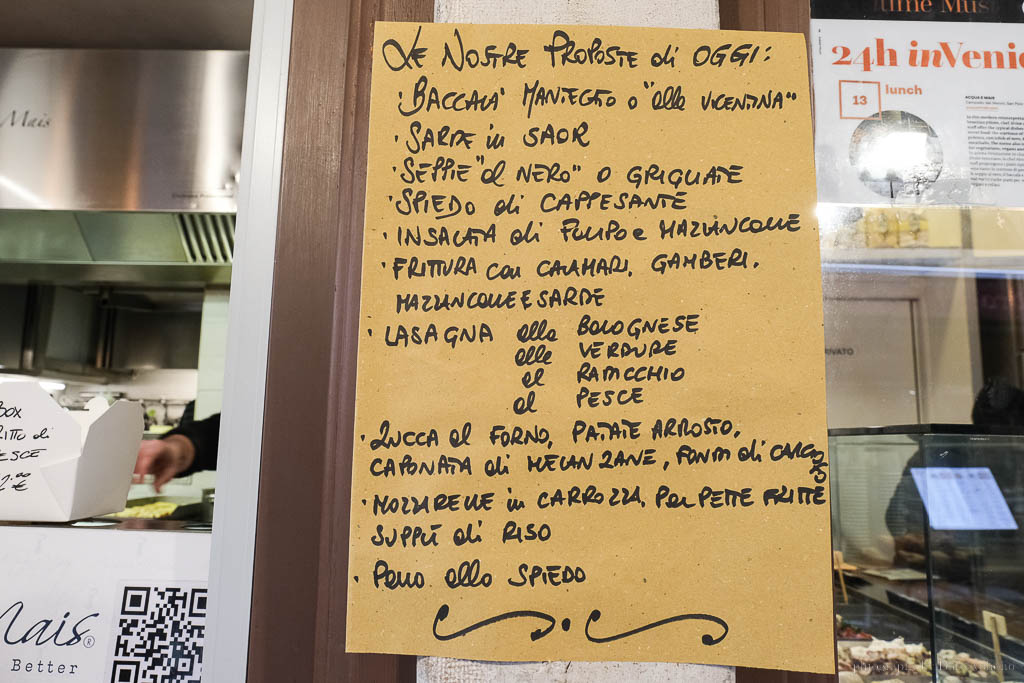 Le Nostre Proposte di OGGI:
· BACCALA' MANTECATO o "alla VICENTINA"
· SARDE in SAOR
· SEPPIE "al NERO" o GRIGLIATE
· SPIEDO di CAPPESANTE
· INSALATA di POLIPO e MAZZANCOLLE
· FRITTURA con CALAMARI, GAMBERI,
MAZZANCOLLE E SARDE
· LASAGNA alla BOLOGNESE
alle VERDURE
al RADICCHIO
al PESCE
· ZUCCA al FORNO, PATATE ARROSTO,
CAPONATA di MELANZANE, FONDI di CARCIOFO
· MOZZARELLE in CARROZZA, POLPETTE FRITTE
SUPPLÌ di RISO
· Pollo allo SPIEDO
Mais
BOX
di
PESCE
Mais®
Better
24h inVenic
13
lunch
ACQUA E MAIS